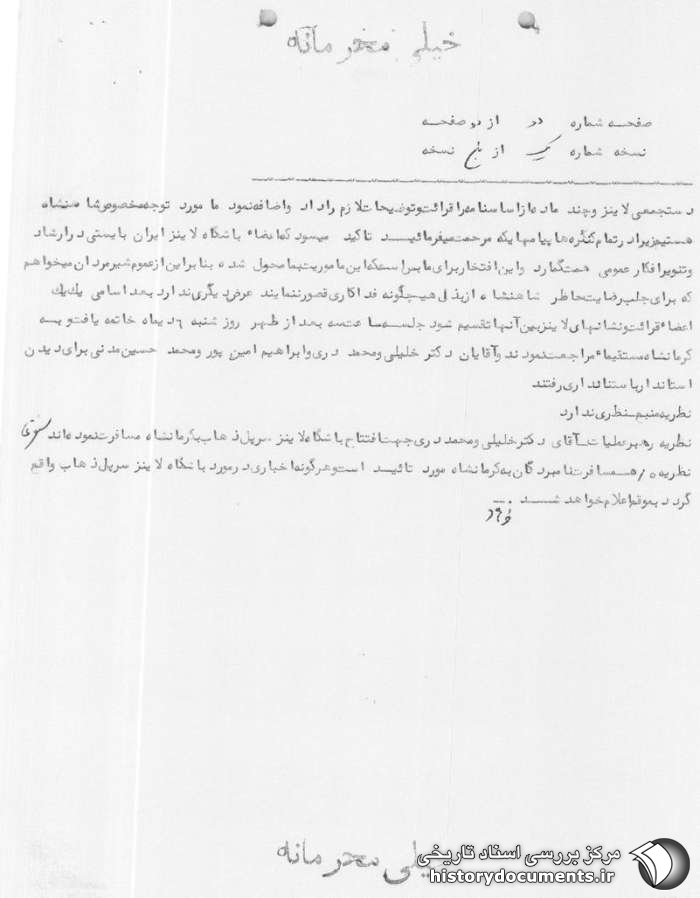 خیلی محرمانه
صفحه شماره دو از دو صفحه
نسخه شماره یک از پنج نسخه
دستجمعی لاینز و چند ماده از اساسنامه را قرائت و توضیحات لازم را داد و اضافه نمود ما مورد توجه مخصوص شاهنشاه
هستیم زیرا در تمام کنگره ها پیامهائیکه مرحمت میفرمائید تاکید میشود که اعضاء باشگاه لاینز ایران بایستی در ارشاد
و تنویر افکار عمومی همت گمارد و این افتخار برای ما بس است که این ماموریت بما محول شده بنابراین از عموم شیرمردان میخواهم
که برای جلب رضایت خاطر شاهنشاه از بذل هیچگونه فداکاری قصور ننمایند عرض دیگری ندارد بعد اسامی یک یک
اعضاء قرائت و نشانهای لاینز بین آنها تقسیم شود جلسه ساعت سه بعد از ظهر روز شنبه ۶ دیماه خاتمه یافت و به
کرمانشاه مستقیماً مراجعت نمودند و آقایان دکتر خلیلی و محمد دری و ابراهیم امین پور و محمد حسین مدنی برای دیدن
استاندار باستانداری رفتند
نظریه منبع نظری ندارد
نظریه رهبر عملیات آقای دکتر خلیلی و محمد دری جهت افتتاح باشگاه لاینز سرپل ذهاب بکرمانشاه مسافرت نموده اند
نظریه ۵/ه مسافرت نامبردگان به کرمانشاه مورد تائید است و هرگونه اخباری در مورد باشگاه لاینز سرپل ذهاب واقع
گردد بموقع اعلام خواهد شد
خیلی محرمانه
مرکز بررسی اسناد تاریخی
historydocuments.ir